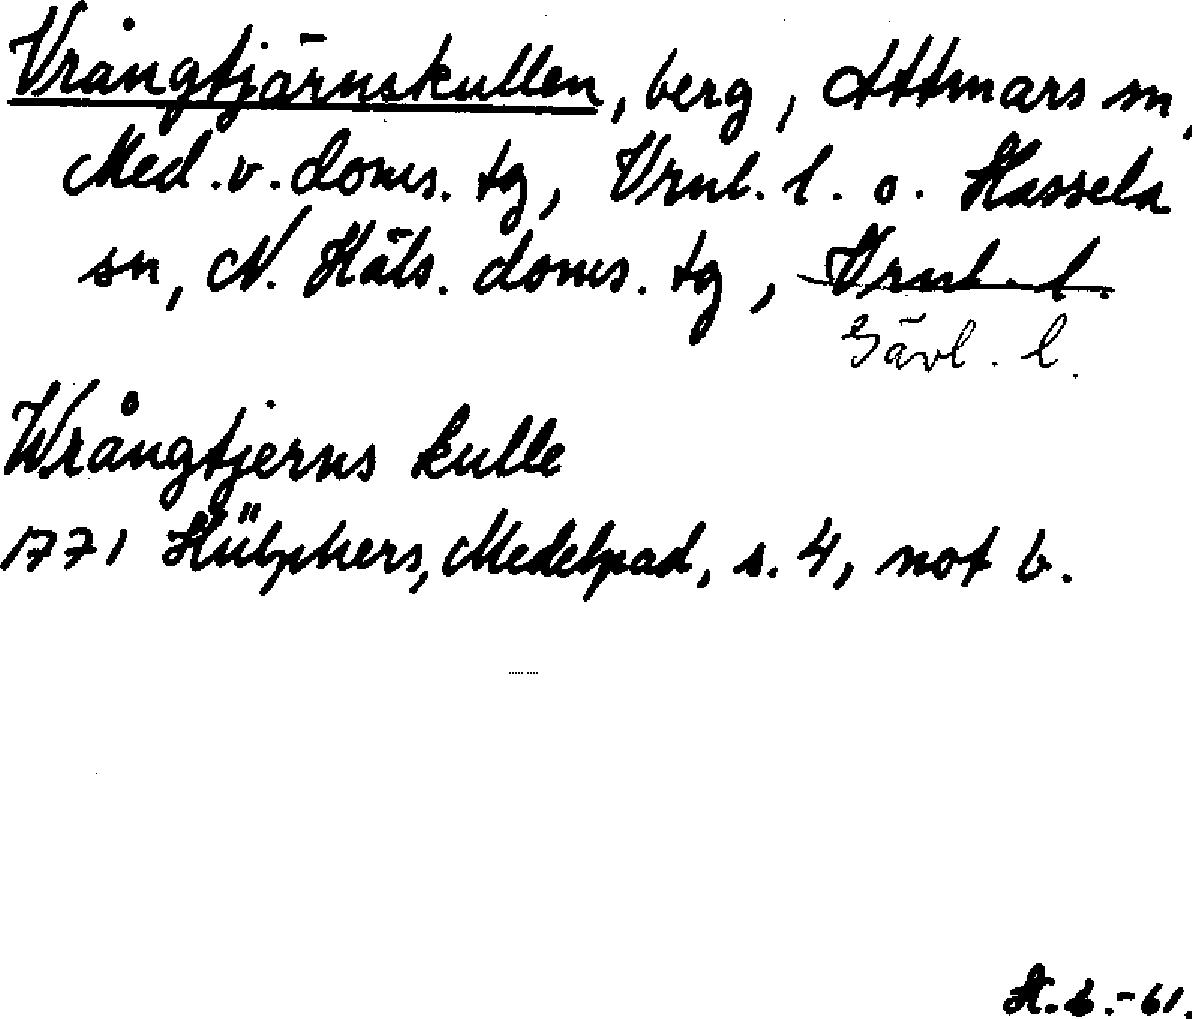 Vrångtjärnskullen, berg, Attmars sn,
Med. v. doms. tg, Vrnl. l. o. Hassela
sn, N. Häls. doms. tg, Vrnl. l.
Gävl. l.
Wrångtjerns kulle
1771 Hülphers, Medelpad, s. 4, not b.